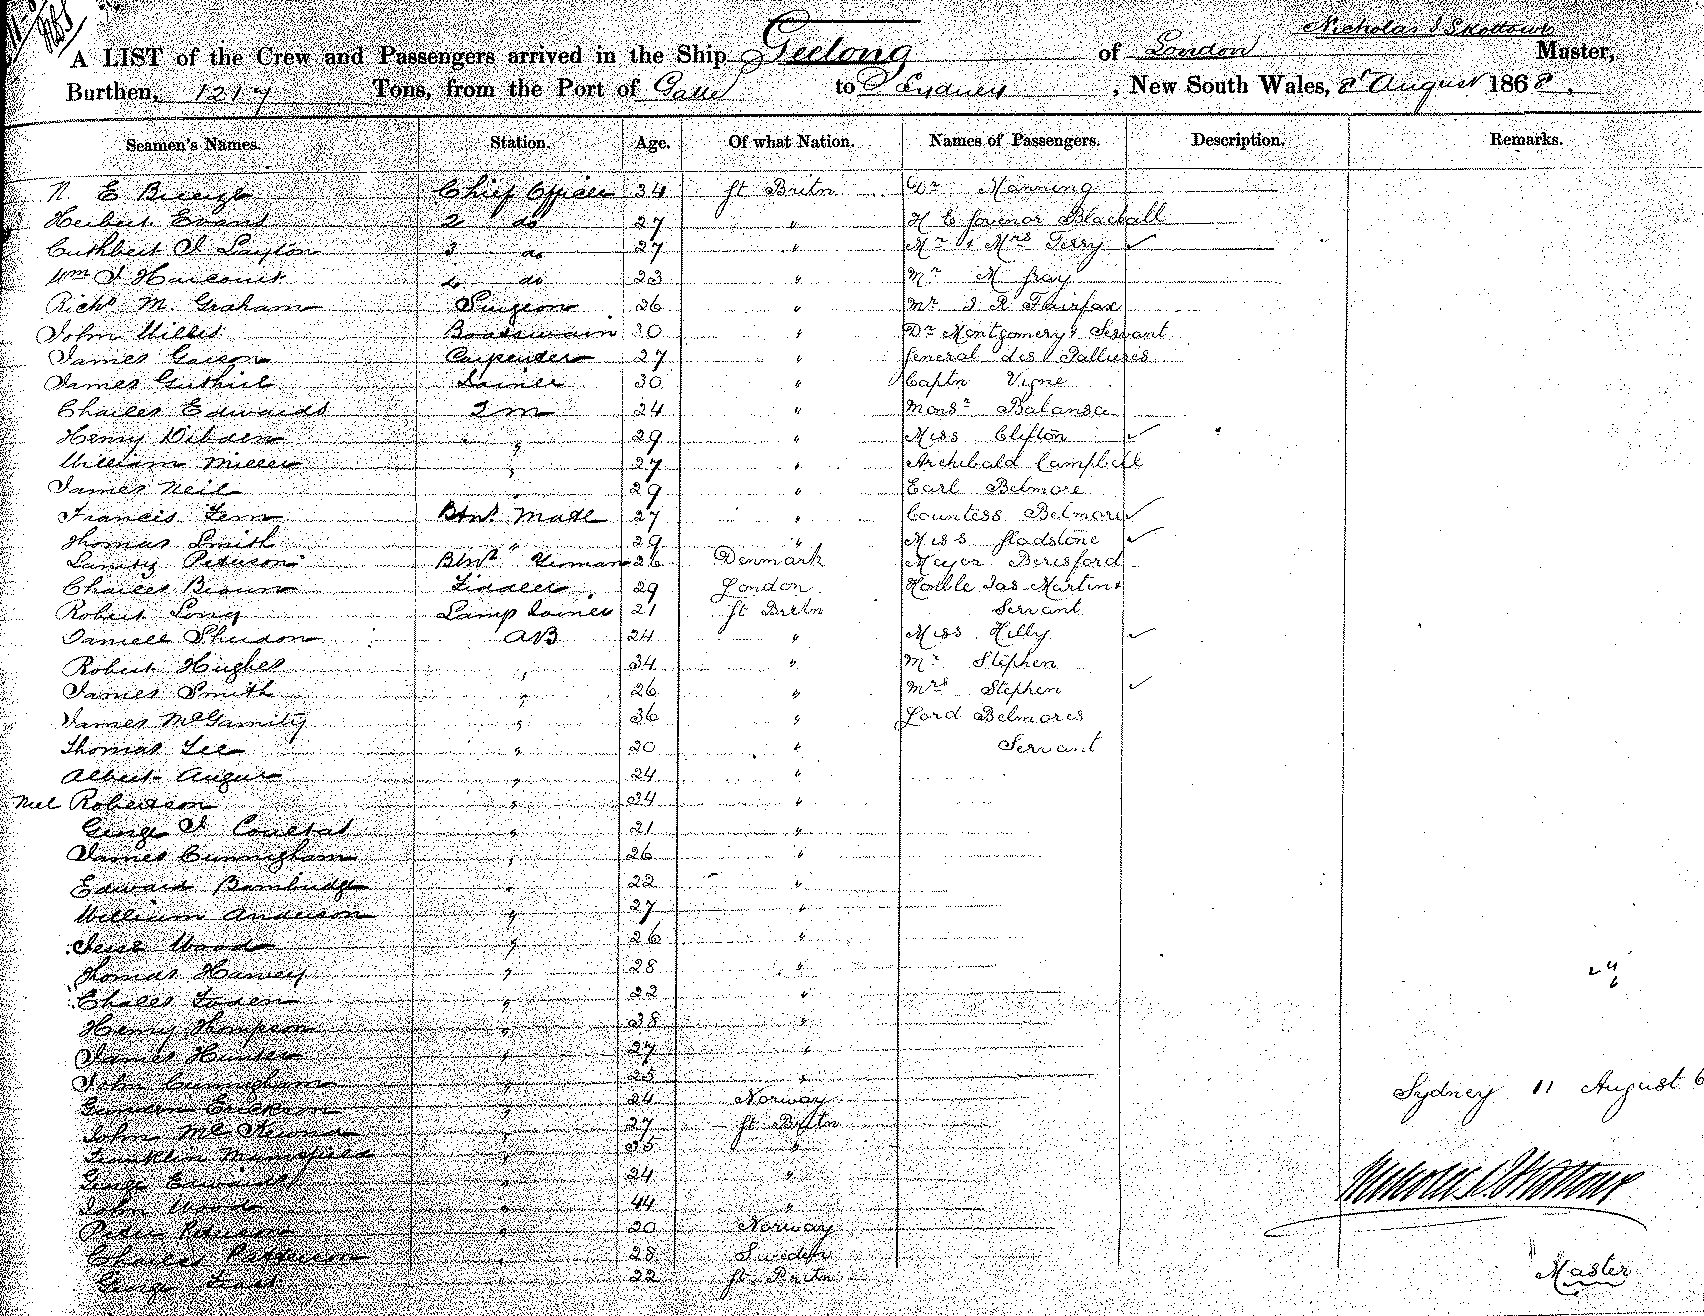 Nicholas I Skottowe
A LIST of the Crew and Passengers arrived in the Ship Geelong of London Master,
Burthen, 1217 Tons, from the Port of Galle to Sydney, New South Wales, August 1868.
Seamen's Names. Station. Age. Of what Nation. Names of Passengers. Description. Remarks.
N E Chief Officer 34 Gt Britn Manning
Herbert Evans 2 do 27 " H E Govenor Blackall
Cuthbert I Layton 3 do 27 " Mr & Mrs Terry ✓
Wm I Harcourt 4 do 23 " Mr Gray
Richd M. Graham Surgeon 26 " Mr I R Fairfax
John Willis Boatswain 30 " Dr Montgomery & Servant
James Carpenter 27 " General des Pallieres
James Guthrie Joiner 30 " Captn Vigne
Charles Edwards 2 m 24 " Monsr Balansa
Henry Dibden " 29 " Miss Clifton ✓
William Miller " 27 " Archibald Campbell
James Neil " 29 " Earl Belmore
Francis Fern Btns Mate 27 " Countess Belmore ✓
Thomas Smith " 29 " Miss Gladstone ✓
Peterson Btns Yeoman 26 Denmark Beresford
Charles Brown Fiddler 29 London Honble Jas Martin &
Robert Long Lamp Joiner 21 Gt Britn Servant
Daniell Sheridon AB 24 " Miss Hilly ✓
Robert Hughes " 34 " Mr Stephen
James Smith " 26 " Mrs Stephen ✓
James McGarnity " 36 " Lord Belmores
Thomas Lee " 20 " Servant
Albert " 24 "
Neil Robertson " 34 "
George I " 21 "
James Cunnigham " 26 "
Edward Bambridge " 22 "
William Anderson " 27 "
Wood " 26 "
Thomas Harvey " 28 "
Charles " 22 "
Henry Thompson " 38 "
James Hunter " 27 "
John Cunnigham " 25 " Sydney 11 August 6
Erickson " 24 Norway
John " 27 Gt Britn
Franklin Mansfield " 35 "
George Edwards " 24 "
John Wood " 44 "
Peter Peterson " 20 Norway
Charles " 28 Sweden
George " 22 Gt Britn Master